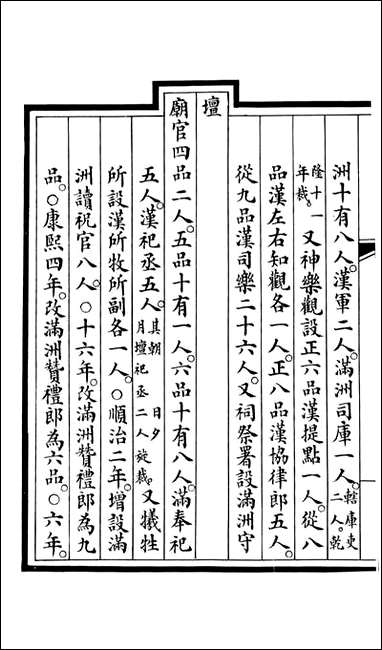 洲十有八人。漢軍二人。滿洲司庫一人。轄庫吏二人。乾
隆十年裁。一又神樂觀設正六品漢提點一人。從八
品漢左右知觀各一人。正八品漢協律郎五人。
從九品漢司樂二十六人。又祠祭署設滿洲守
壇
廟官四品二人。五品十有一人。六品十有八人。滿奉祀
五人。漢祀丞五人。其朝日夕月壇祀丞二人旋裁。又犧牲
所設漢所牧所副各一人。○順治二年。增設滿
洲讀祝官八人。○十六年。改滿洲贊禮郎為九
品。○康熙四年。改滿洲贊禮郎為六品。○六年。